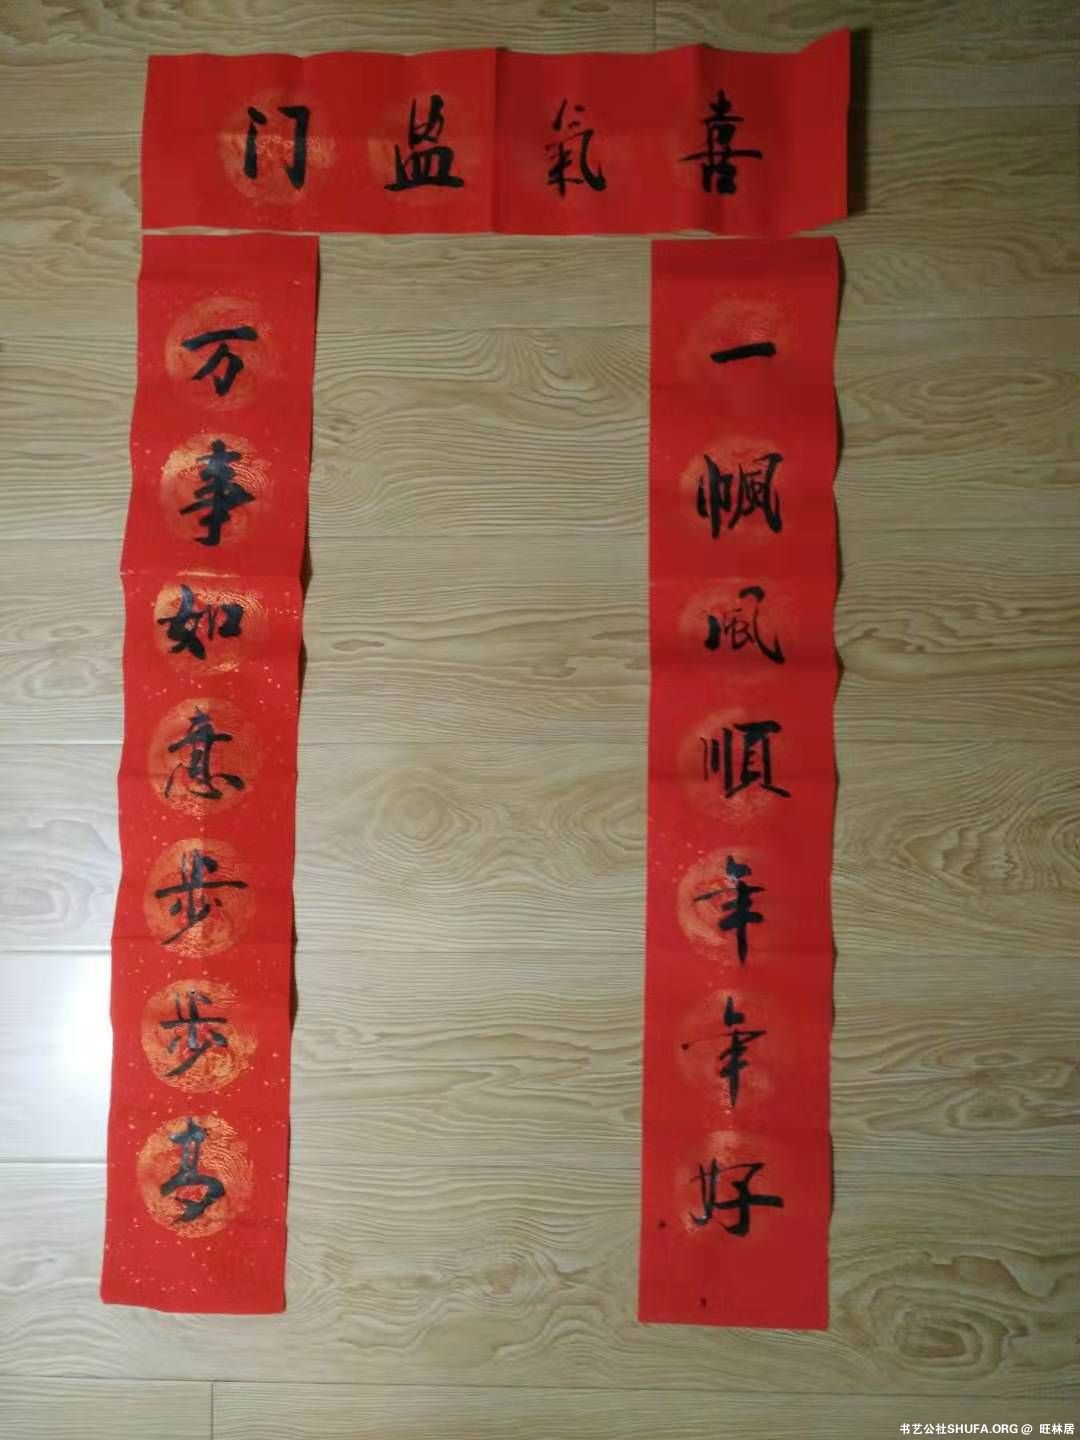 喜氣盈门
一帆风順年年好
万事如意步步高
书艺公社SHUFA.ORG @ 旺林居